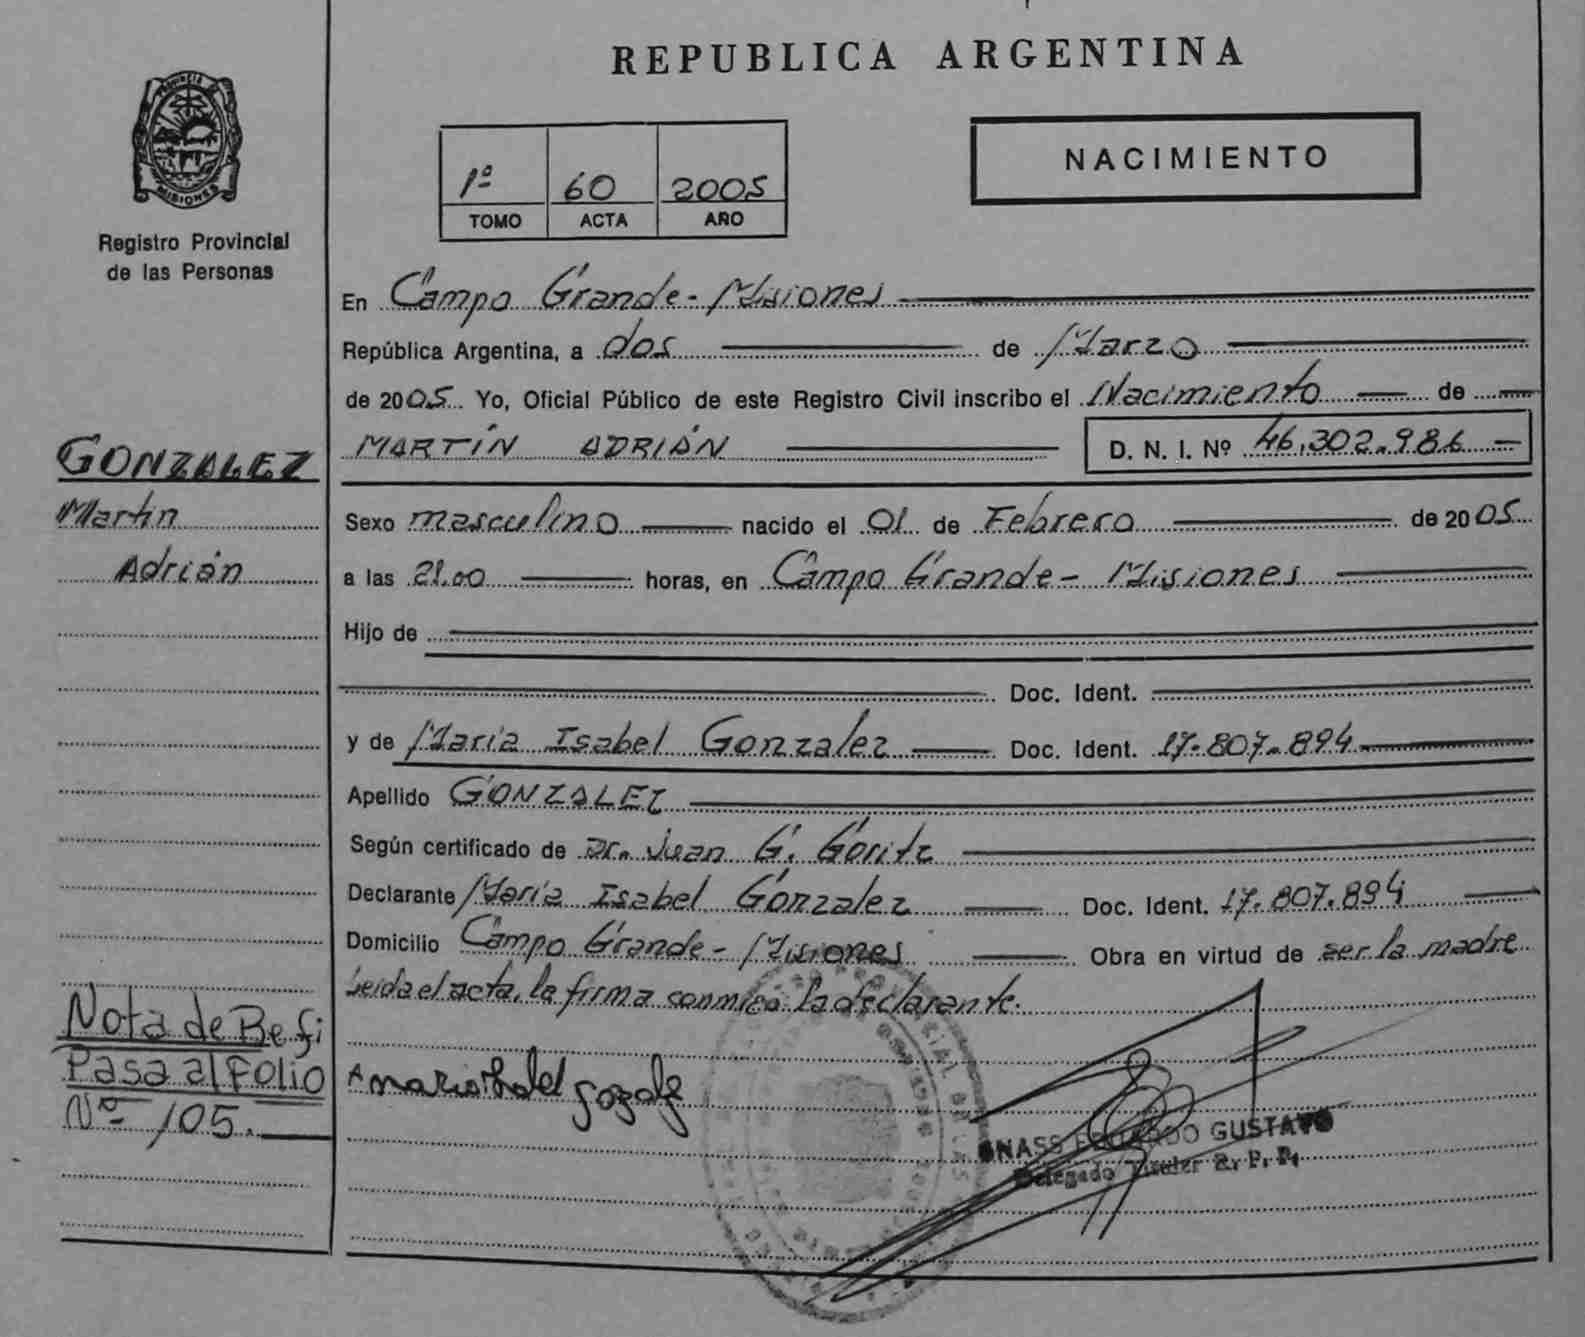 REPUBLICA ARGENTINA
PROVINCIA DE
MISIONES
Registro Provincial
de las Personas
1º 60 2005
TOMO ACTA AÑO
NACIMIENTO
En Campo Grande - Misiones
República Argentina, a dos de Marzo
de 2005 Yo, Oficial Público de este Registro Civil inscribo el Nacimiento de
MARTÍN ADRIÁN D. N. I. Nº 46.302.986
GONZALEZ
Martín
Adrián
Sexo masculino nacido el 01 de Febrero de 2005
a las 21.00 horas, en Campo Grande - Misiones
Hijo de
Doc. Ident.
y de María Isabel Gonzalez Doc. Ident. 17.807.894
Apellido GONZALEZ
Según certificado de Dr. Juan G. Goritz
Declarante María Isabel Gonzalez Doc. Ident. 17.807.894
Domicilio Campo Grande - Misiones Obra en virtud de ser la madre
Leída el acta, la firma conmigo la declarante.
Nota de
Pasa al Folio
Nº 105.
GUSTAVO
Delegado Titular R. P. P.